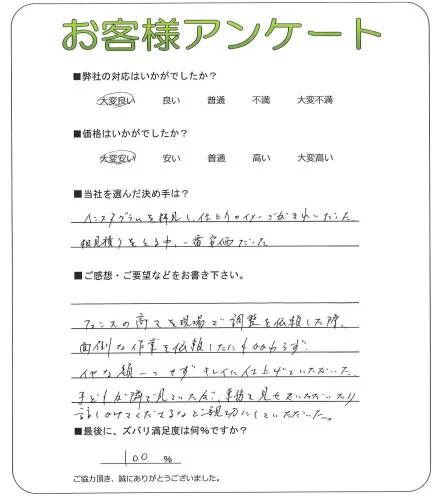 お客様アンケート
■弊社の対応はいかがでしたか？
大変良い 良い 普通 不満 大変不満
■価格はいかがでしたか？
大変安い 安い 普通 高い 大変高い
■当社を選んだ決め手は？
インスタグラムを拝見し、仕上りのイメージがきれいだった。
相見積りをとる中、一番安価だった
■ご感想・ご要望などをお書き下さい。
フェンスの高さを現場で調整を依頼した際、
面倒な作業を依頼したにもかかわらず、
イヤな顔一つせずキレイに仕上げていただいた。
子どもが隣で見ていたが、 見せていただいたり
話しかけてくださるなど親切にしていただいた。
■最後に、ズバリ満足度は何%ですか？
100 %
ご協力頂き、誠にありがとうございました。